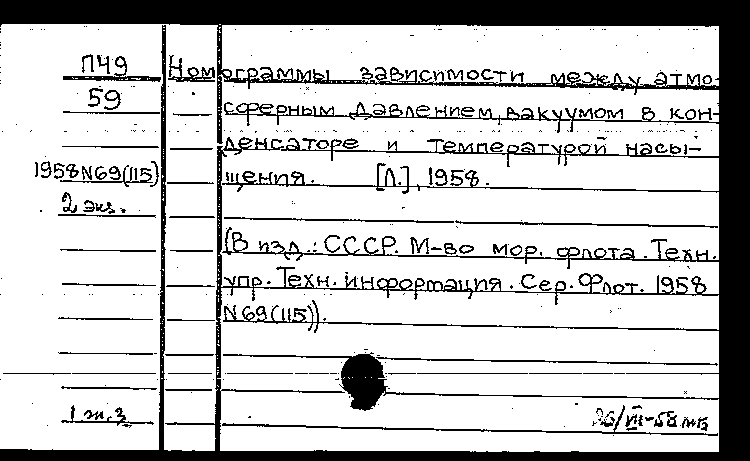 П49
59
1958N69(115)
2 экз.
Номограммы зависимости между атмо-
сферным давлением, вакуумом в кон-
денсаторе и температурой насы-
щения. [Л.], 1958.
(В изд.: СССР. М-во мор. флота. Техн.
упр. Техн. информация. Сер. Флот. 1958
N69(115)).
26/VII-58